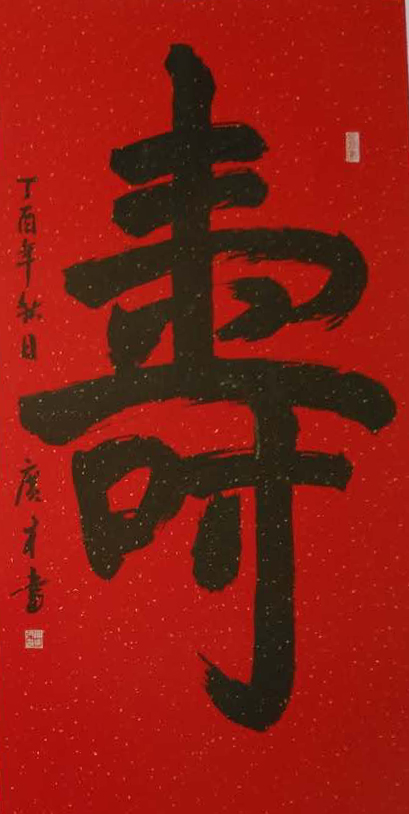 壽
丁酉年秋日 廣才書